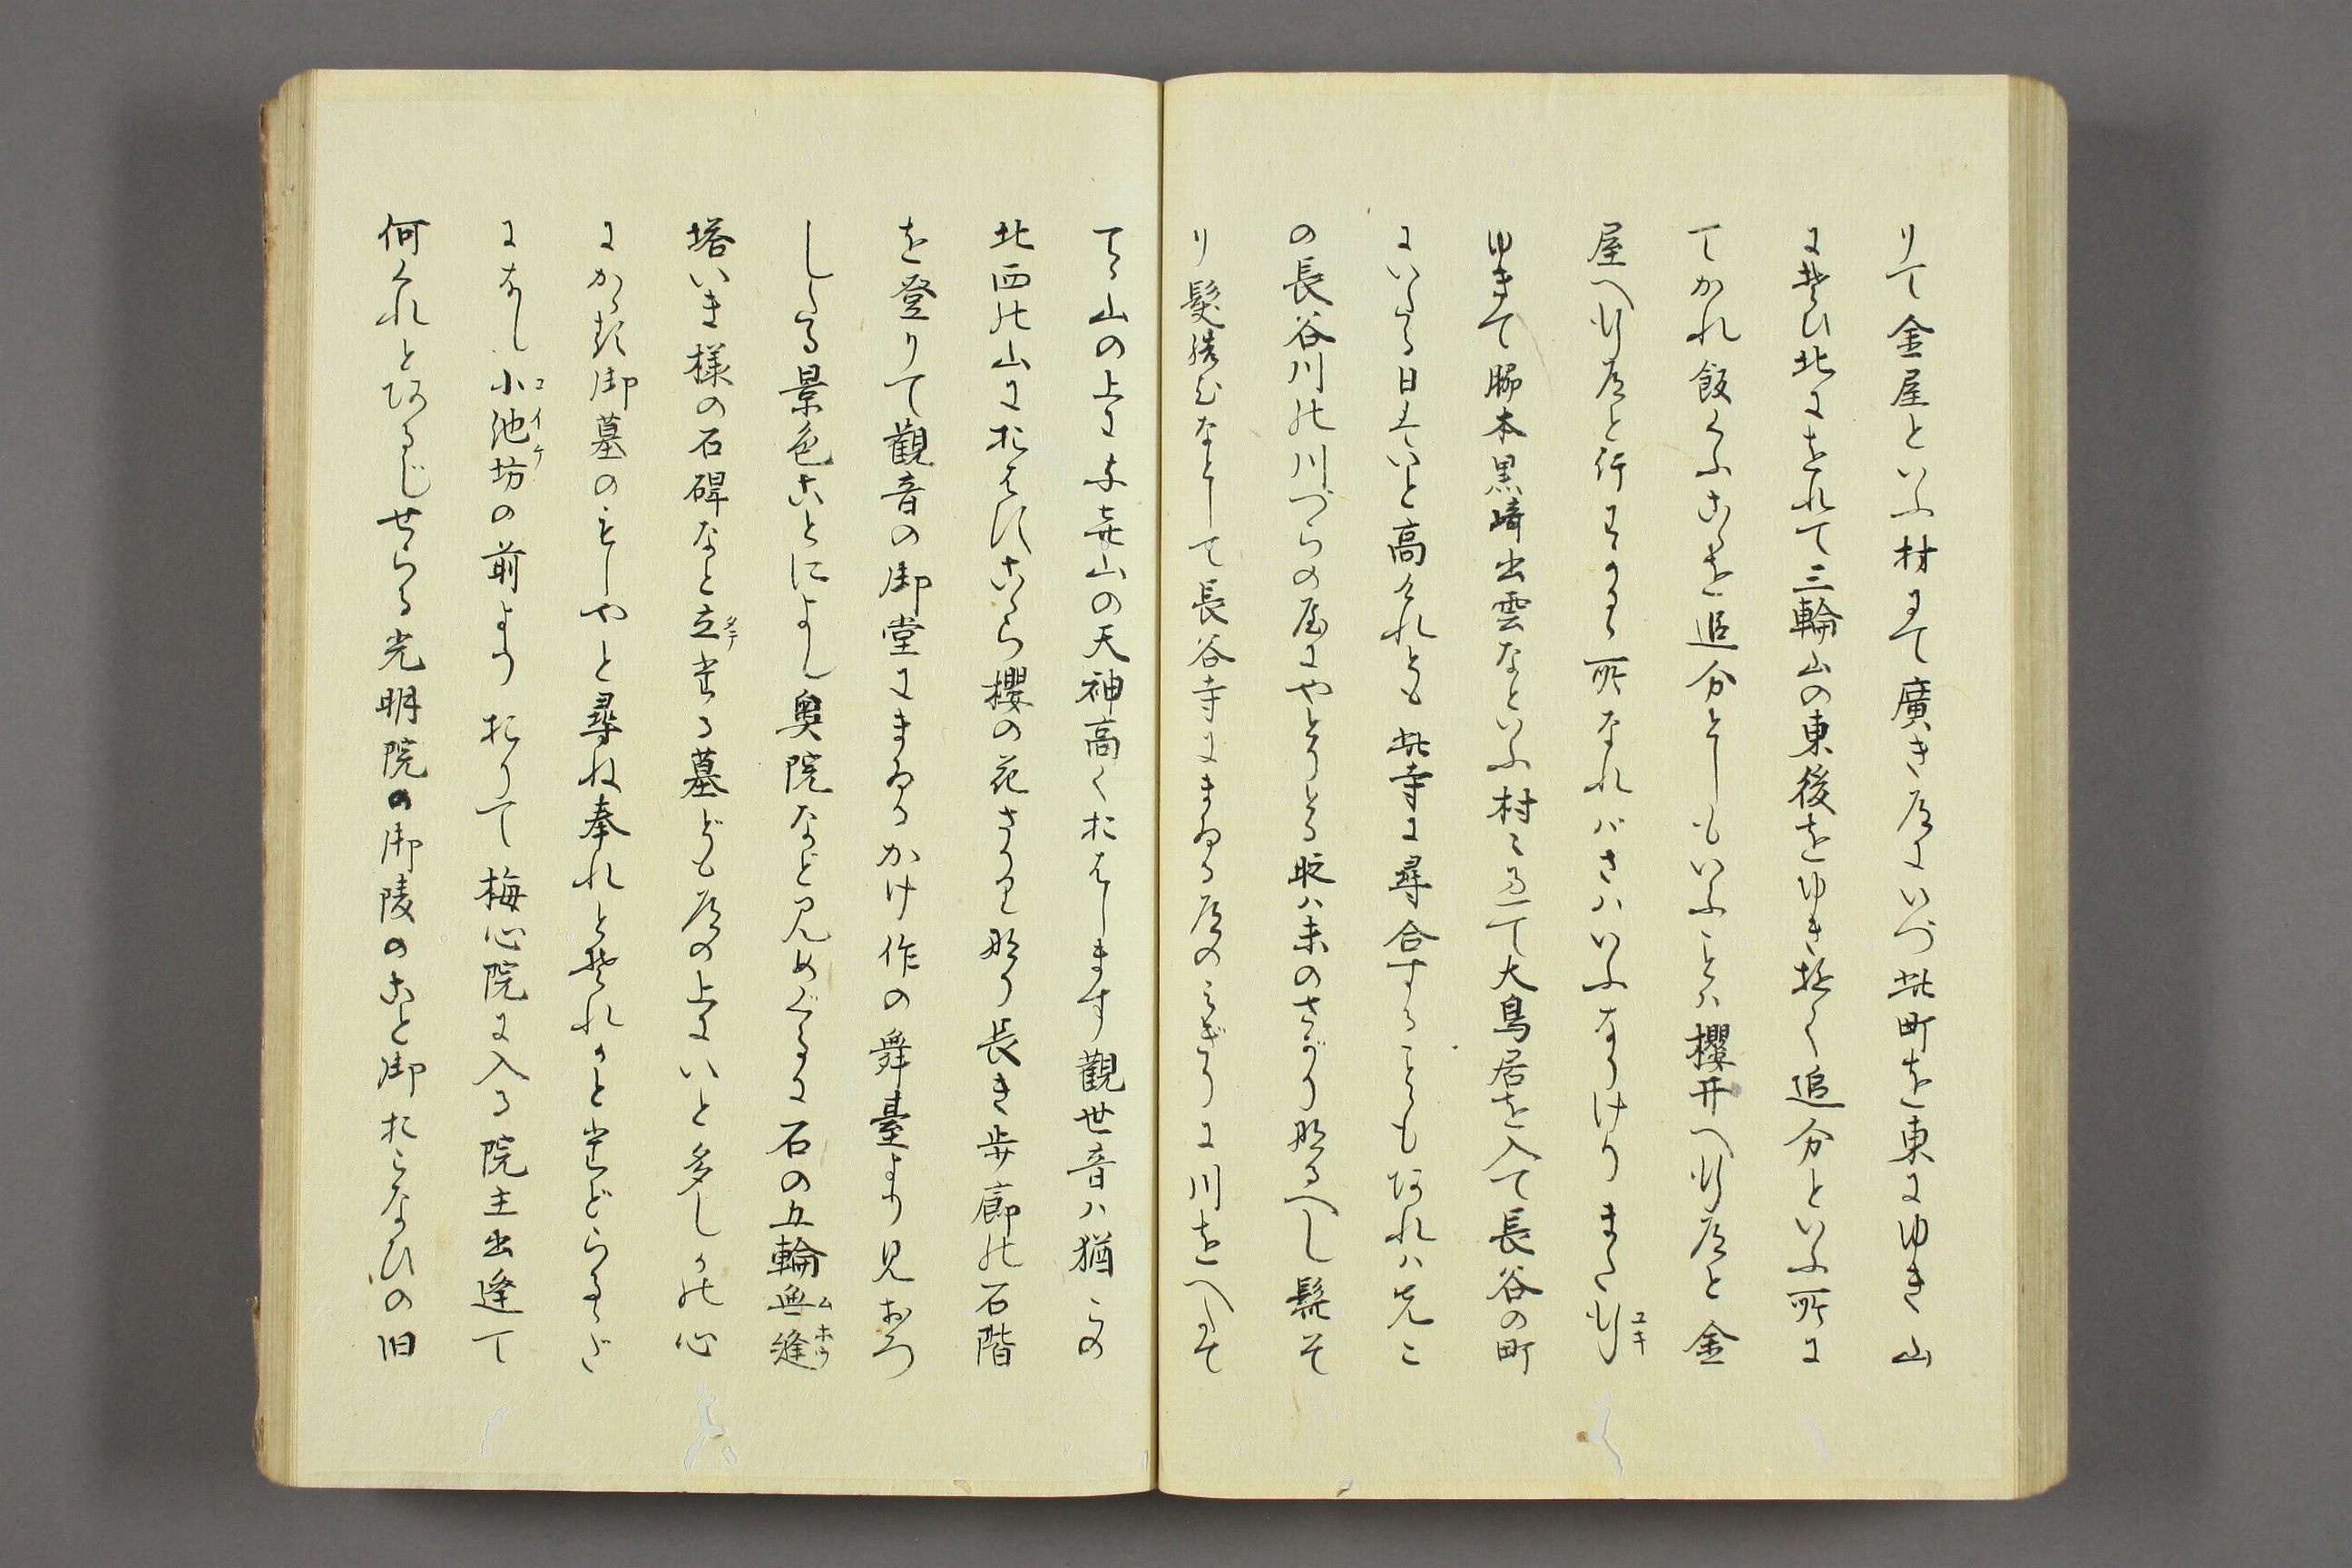 りて金屋といふ村にて廣き道にいづ此町を東にゆき山
にそひ北にをれて三輪山の東後をゆき極く追分といふ所に
てかれ飯くふこゝを追分としもいふことハ櫻井へ別道と金
屋へ別道と行わかるゝ所なれバさハいふなりけりまた別
ゆきて脇本黒崎出雲なといふ村々過て大鳥居を入て長谷の町
にいたる日はいと高けれとも此寺に尋合することもあれハ先こ
の長谷川の川づらの屋にやとりとる時ハ未のさがり成へし髭そ
り髪結ひなとして長谷寺にまゐる道のみぎりに川をへたて
てゝ山の上に与喜山の天神高くおはします觀世音ハ猶この
北西の山におはすこゝら櫻の花さかり也り長き歩廊の石階
を登りて觀音の御堂にまゐるかけ作の舞臺より見おろ
したる景色ことによし奥院など見めぐるに石の五輪無縫
塔いき様の石碑なと立たる墓ども道の上にいと多しかの心
にかゝる御墓のもしやと尋ね奉れとそれかとたどらるゝだ
になし小池坊の前よりおりて梅心院に入る院主出逢て
何くれとあるじせらる光明院の御陵のこと御おこなひの旧